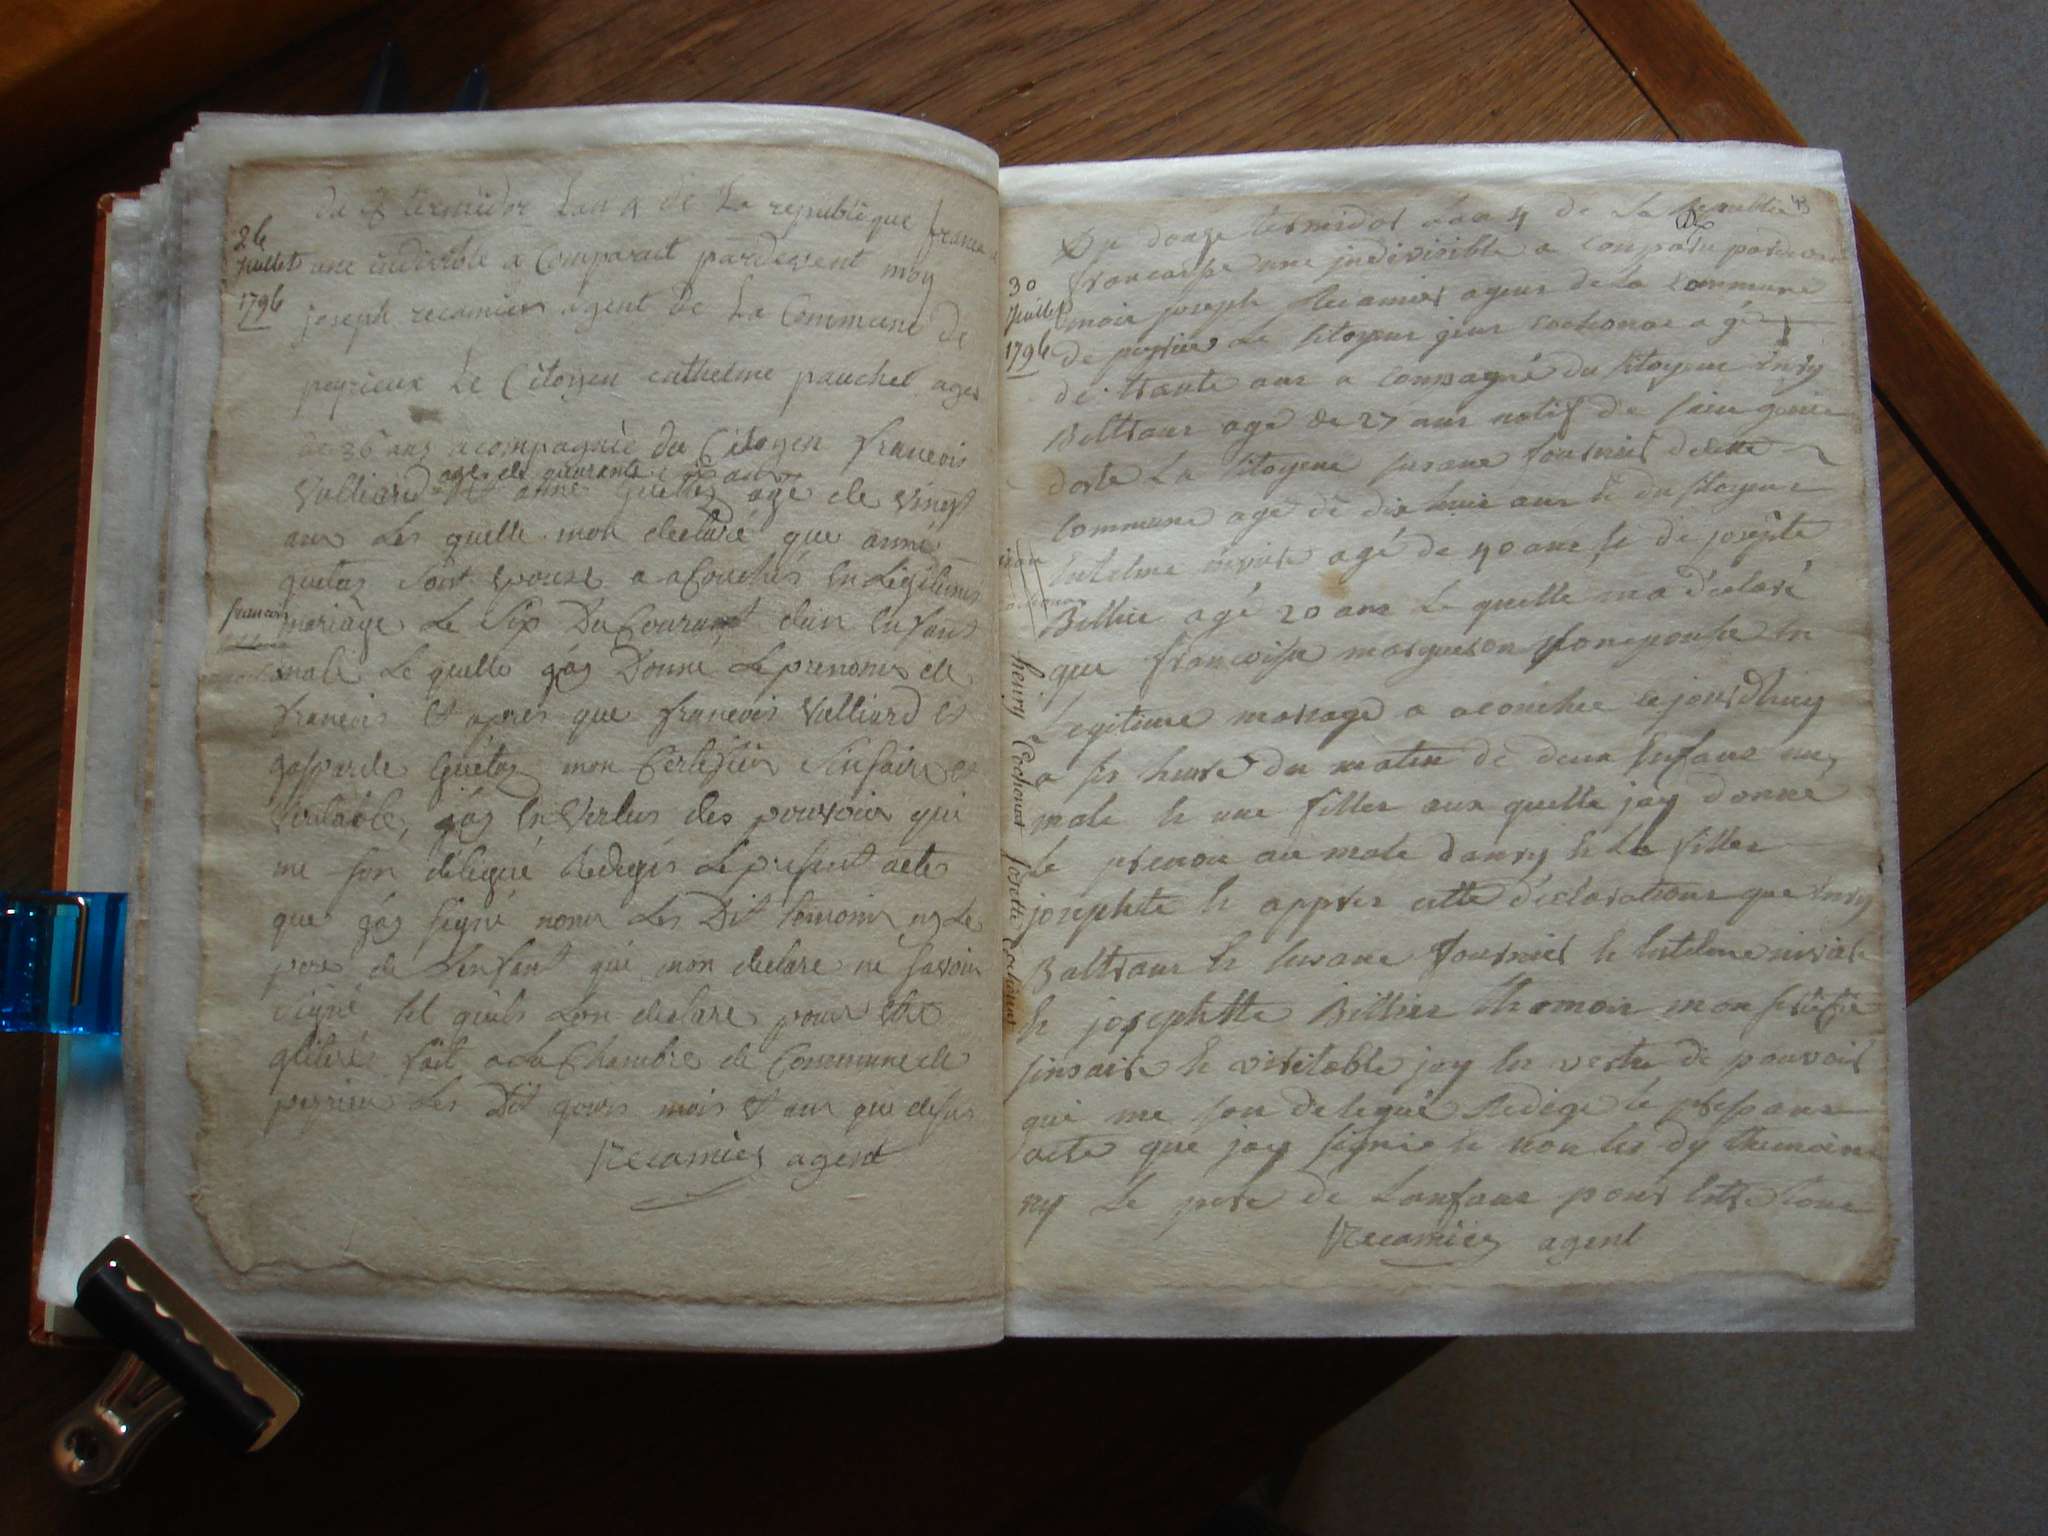 26
juillet
1796
du 8 termidor Lan 4 de La republique franca
une indivible a Comparait pardevent moy
joseph recamier agent de La Commune de
peyrieux Le Citoyen cathelme pauchet ages
de 36 ans acompagnie du Citoyen francois
age de quarante
Valliard et anne guettaz age de vingt
ans Les quelle mon declaré que anne
guetaz sont epouse a acouchés en Legitime
francois
mariage Le Six Du Courant dun enfant
male Le quelle jay Donné Le prenoms de
francois Et apres que francois Valliard et
gasparde Guetaz mon Certifiés Sinsaire et
Veritable, jay En Vertus des pouvoirs qui
me son délégué Redigés Le present acte
que jay signé nonts Les Dit temoins ny Le
pere de Lenfant qui mon declare ne savoir
signé fait a La Chambre de Commune de
peyrieu Les Dit jours mois et ans que desus
Recamier agent
30
juillet
1796
Du douze termidor lan 4 de La Republic
francaisse une jndivisible a comparu pardevan
moir joseph Recamier agens de La commune
de peyrieu Le sitoyens jean cochonat agé
de trante ans a compagné du sitoyens henry
Beltrans age de 27 ans natif de
La sitoyene susane fournier de dite
commune age de dix huit ans et du sitoyens
entelme agé de 40 ans et de josephte
Billiet agé 20 ans Le quelle ma déclaré
que francoisse margueron son epouse en
Legitime mariage a acouchee le jourdhuy
a sis heure du matin de deux enfans un
male et une filler aux quelle jay donne
le prenom au male danry et La filler
josephte et appres cette déclarations que henry
Baltrans et susane fournier et entelme
et josephtte Billiet themoir mon sertifie
sinsaire et veritable jay en vertu de pouvoir
qui me son delegué Redige le pressans
acte que jay signie et non les dy themoins
ny Le pere de Lanfans pour
Recamier agent
henry Cochonat Josette Cochonat